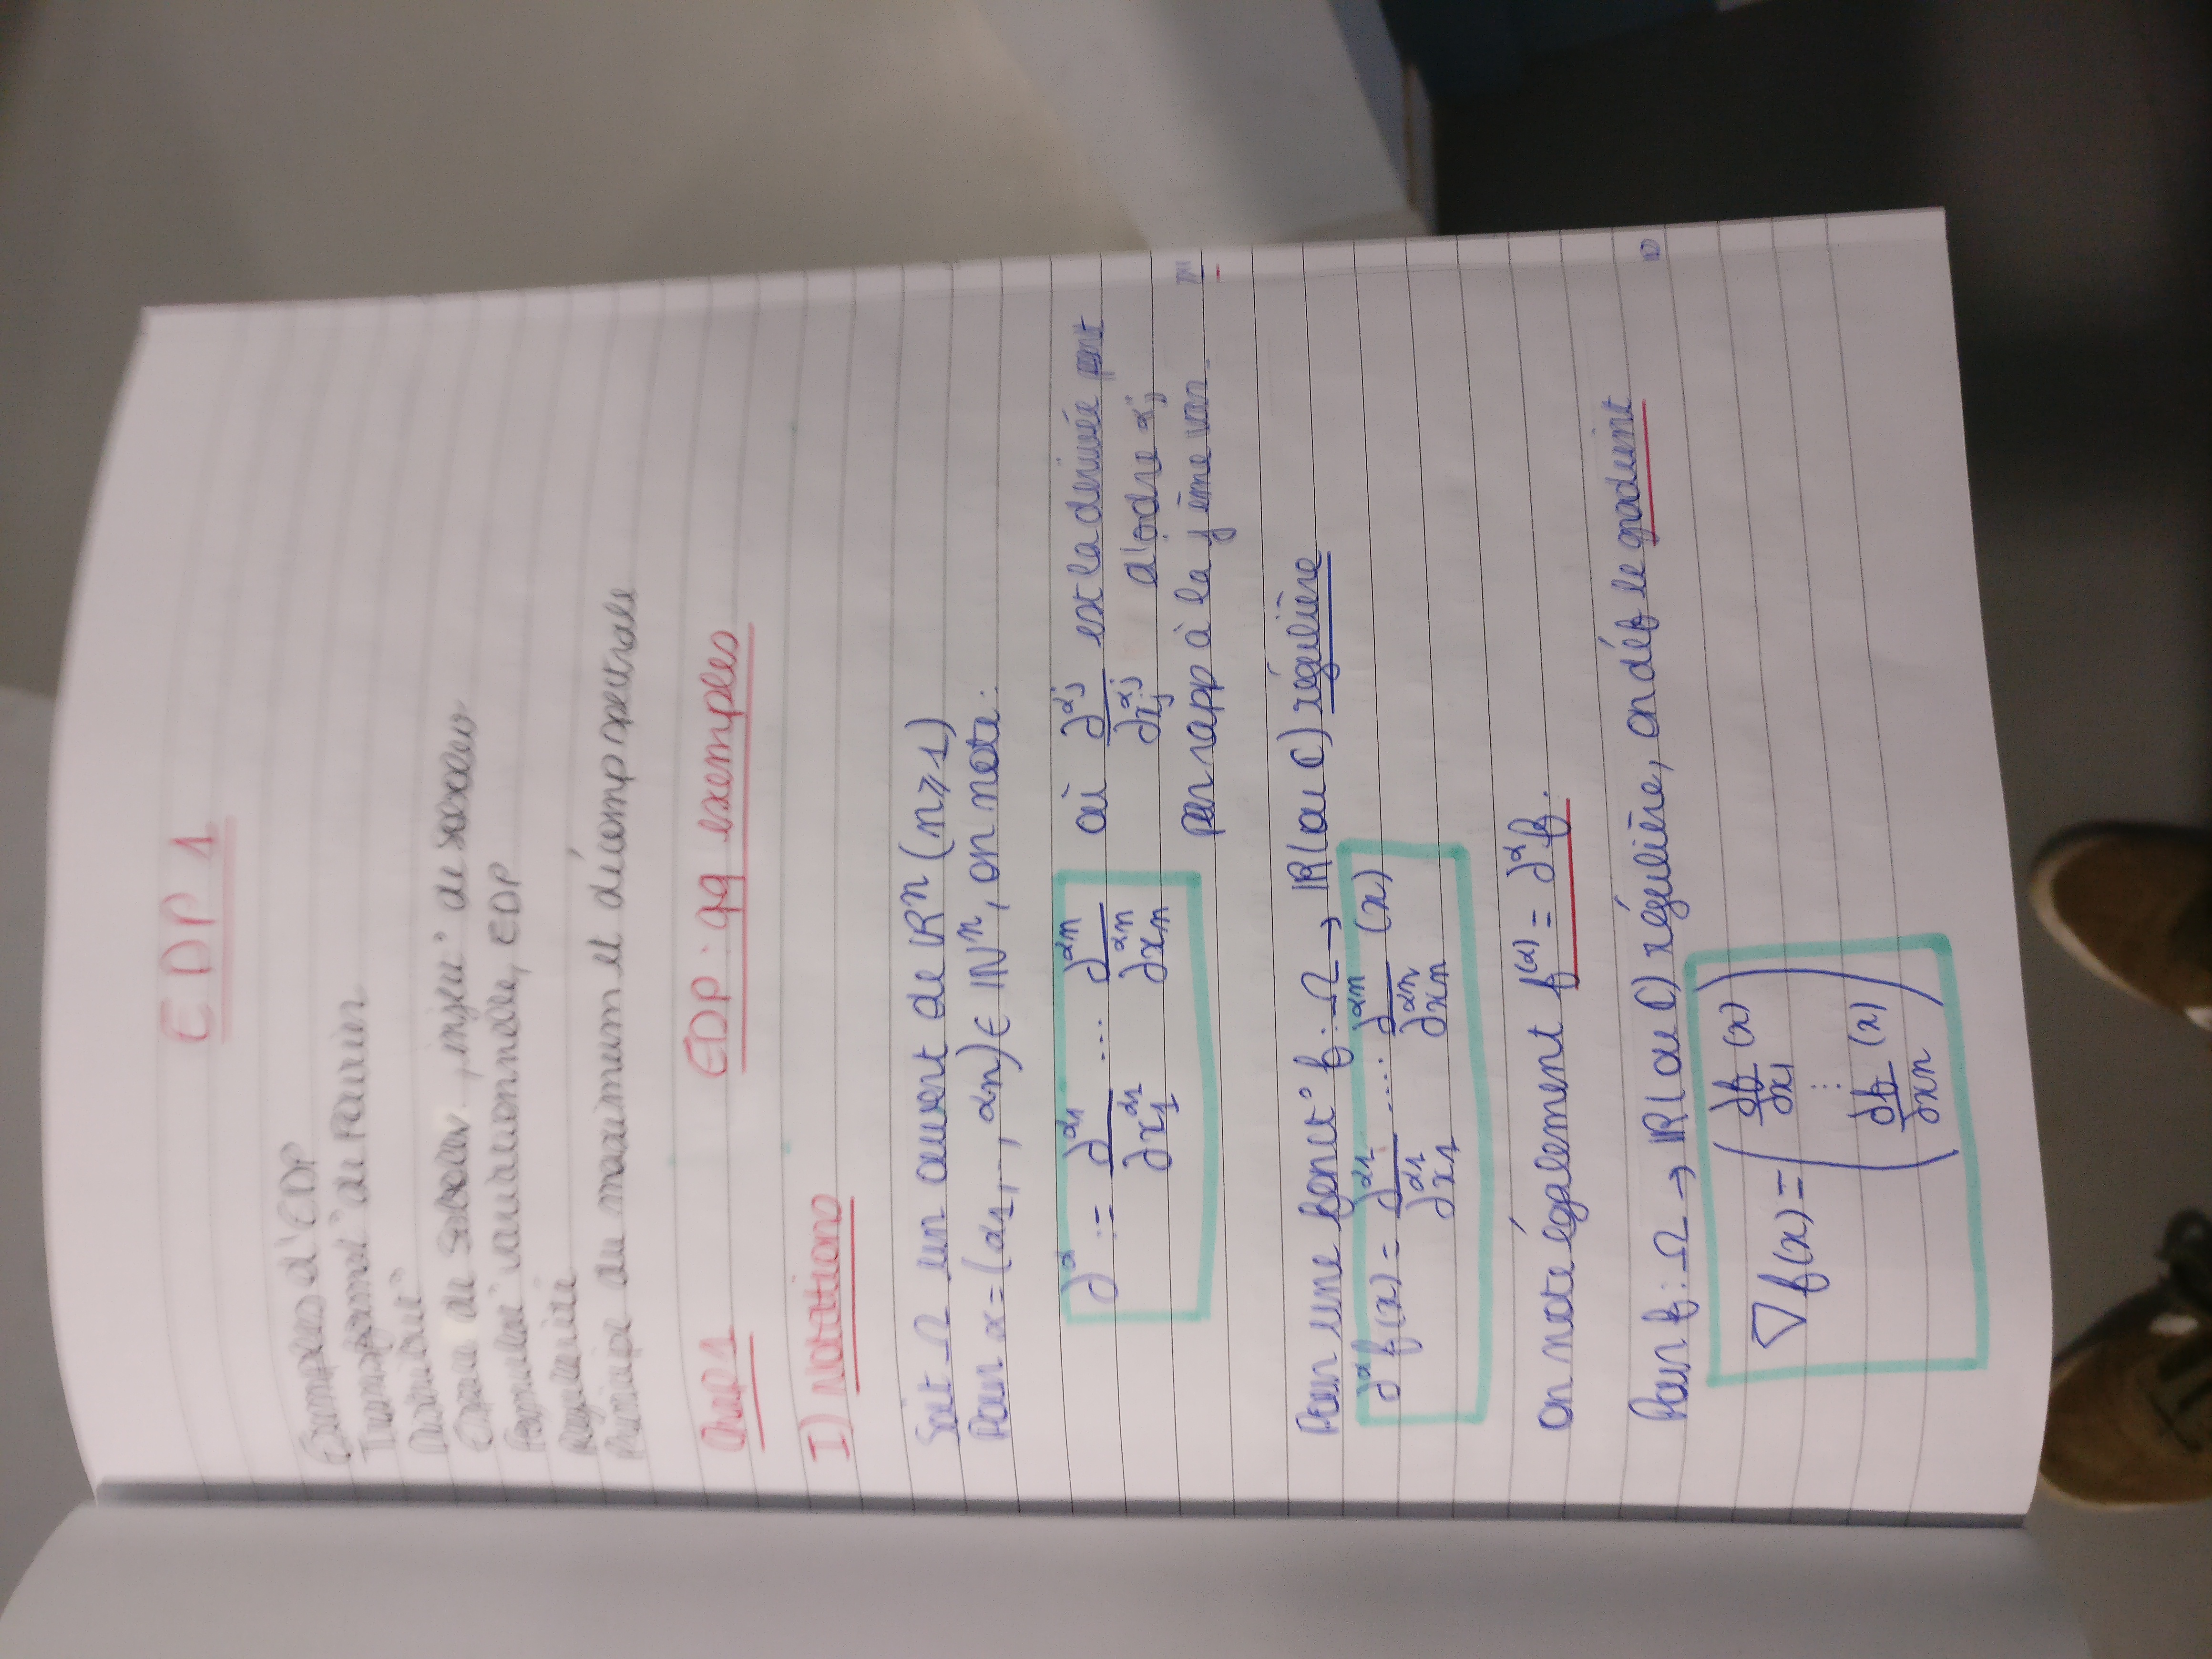 EDP 1
Exemples d'EDP
Transformat° de Fourier
Distribut°
Espace de Sobolev, inject° de Sobolev
Formulat° variationnelle, EDP
Régularité
Principe du maximum et décomp spectrale
Chap 1 EDP : qq exemples
I) Notations
Soit Ω un ouvert de ℝⁿ (n ⩾ 1)
Pour α = (α1, .., αn) ∈ ℕⁿ, on note :
∂^α := ∂^α1/∂x1^α1 ... ∂^αn/∂xn^αn où ∂^αj/∂xj^αj est la dérivée
d'odre αj
par rapp à la j ème var.
Pour une fonct° f : Ω → ℝ (ou ℂ) régulière
∂^α f(x) = ∂^α1/∂x1^α1 .... ∂^αn/∂xn^αn (x)
on note également f^(α) = ∂^α f.
Pour f : Ω → ℝ (ou ℂ) régulière, on déf le gradient
∇f(x) = ( ∂f/∂x1 (x)
⋮
∂f/∂xn (x) )